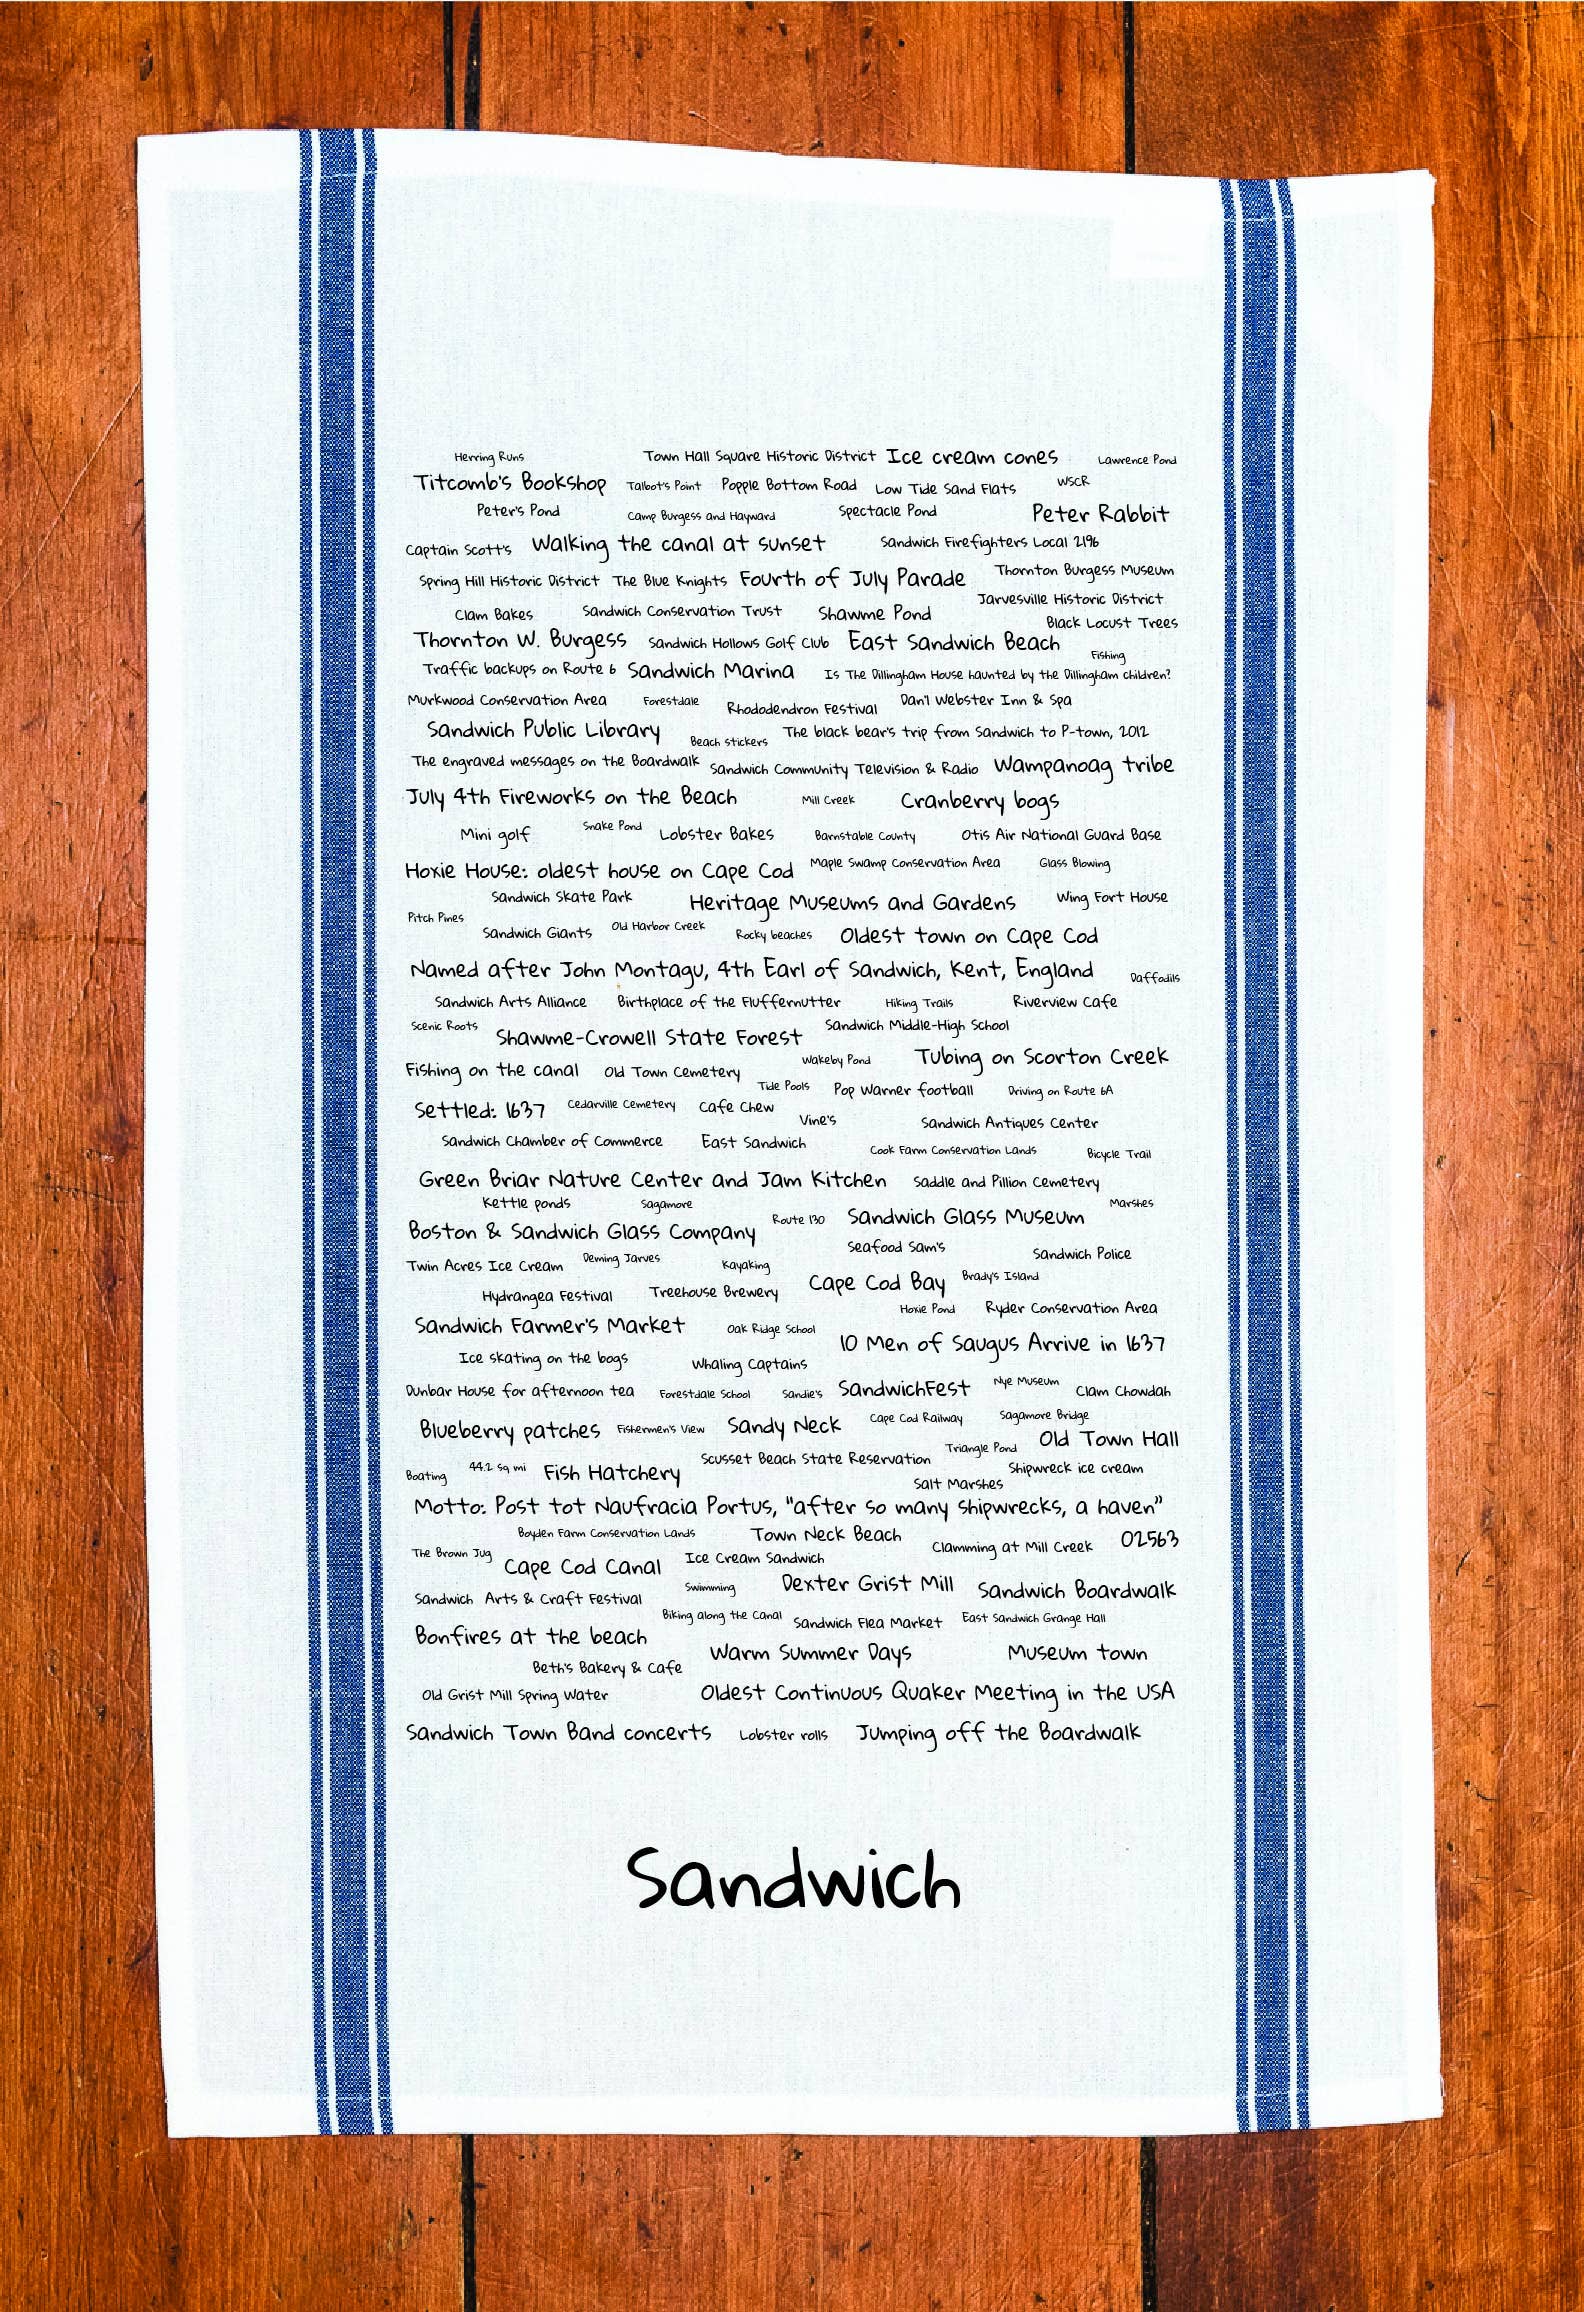 Herring Runs Town Hall Square Historic District Ice cream cones Lawrence Pond
Titcomb's Bookshop Talbot's Point Popple Bottom Road Low Tide Sand Flats WSCR
Peter's Pond Camp Burgess and Hayward Spectacle Pond Peter Rabbit
Captain Scott's Walking the canal at sunset Sandwich Firefighters Local 2196
Spring Hill Historic District The Blue Knights Fourth of July Parade Thornton Burgess Museum
Jarvesville Historic District
Clam Bakes Sandwich Conservation Trust Shawme Pond Black Locust Trees
Thornton W. Burgess Sandwich Hollows Golf Club East Sandwich Beach Fishing
Traffic backups on Route 6 Sandwich Marina Is The Dillingham House haunted by the Dillingham children?
Murkwood Conservation Area Forestdale Rhododendron Festival Dan'l Webster Inn & Spa
Sandwich Public Library Beach stickers The black bear's trip from Sandwich to P-town, 2012
The engraved messages on the Boardwalk Sandwich Community Television & Radio Wampanoag tribe
July 4th Fireworks on the Beach Mill Creek Cranberry bogs
Mini golf Snake Pond Lobster Bakes Barnstable County Otis Air National Guard Base
Hoxie House: oldest house on Cape Cod Maple Swamp Conservation Area Glass Blowing
Sandwich Skate Park Heritage Museums and Gardens Wing Fort House
Pitch Pines Sandwich Giants Old Harbor Creek Rocky beaches Oldest town on Cape Cod
Named after John Montagu, 4th Earl of Sandwich, Kent, England Daffodils
Sandwich Arts Alliance Birthplace of the Fluffernutter Hiking Trails Riverview Cafe
Scenic Roots Shawme-Crowell State Forest Sandwich Middle-High School
Fishing on the canal Old Town Cemetery Wakeby Pond Tubing on Scorton Creek
Tide Pools Pop Warner football Driving on Route 6A
Settled: 1637 Cedarville Cemetery Cafe Chew Vine's Sandwich Antiques Center
Sandwich Chamber of Commerce East Sandwich Cook Farm Conservation Lands Bicycle Trail
Green Briar Nature Center and Jam Kitchen Saddle and Pillion Cemetery
Kettle ponds Sagamore Marshes
Boston & Sandwich Glass Company Route 130 Sandwich Glass Museum
Seafood Sam's Sandwich Police
Twin Acres Ice Cream Deming Jarves Kayaking
Hydrangea Festival Treehouse Brewery Cape Cod Bay Brady's Island
Hoxie Pond Ryder Conservation Area
Sandwich Farmer's Market Oak Ridge School 10 Men of Saugus Arrive in 1637
Ice skating on the bogs Whaling Captains
Dunbar House for afternoon tea Forestdale School Sandie's SandwichFest Nye Museum Clam Chowdah
Blueberry patches Fishermen's View Sandy Neck Cape Cod Railway Sagamore Bridge
Triangle Pond Old Town Hall
Boating 44.2 sq mi Fish Hatchery Scusset Beach State Reservation Shipwreck ice cream
Salt Marshes
Motto: Post tot Naufracia Portus, "after so many shipwrecks, a haven"
Boyden Farm Conservation Lands Town Neck Beach Clamming at Mill Creek 02563
The Brown Jug Cape Cod Canal Ice Cream Sandwich
Sandwich Arts & Craft Festival Swimming Dexter Grist Mill Sandwich Boardwalk
Biking along the Canal Sandwich Flea Market East Sandwich Grange Hall
Bonfires at the beach Warm Summer Days Museum town
Beth's Bakery & Cafe
Old Grist Mill Spring Water Oldest Continuous Quaker Meeting in the USA
Sandwich Town Band concerts Lobster rolls Jumping off the Boardwalk
Sandwich